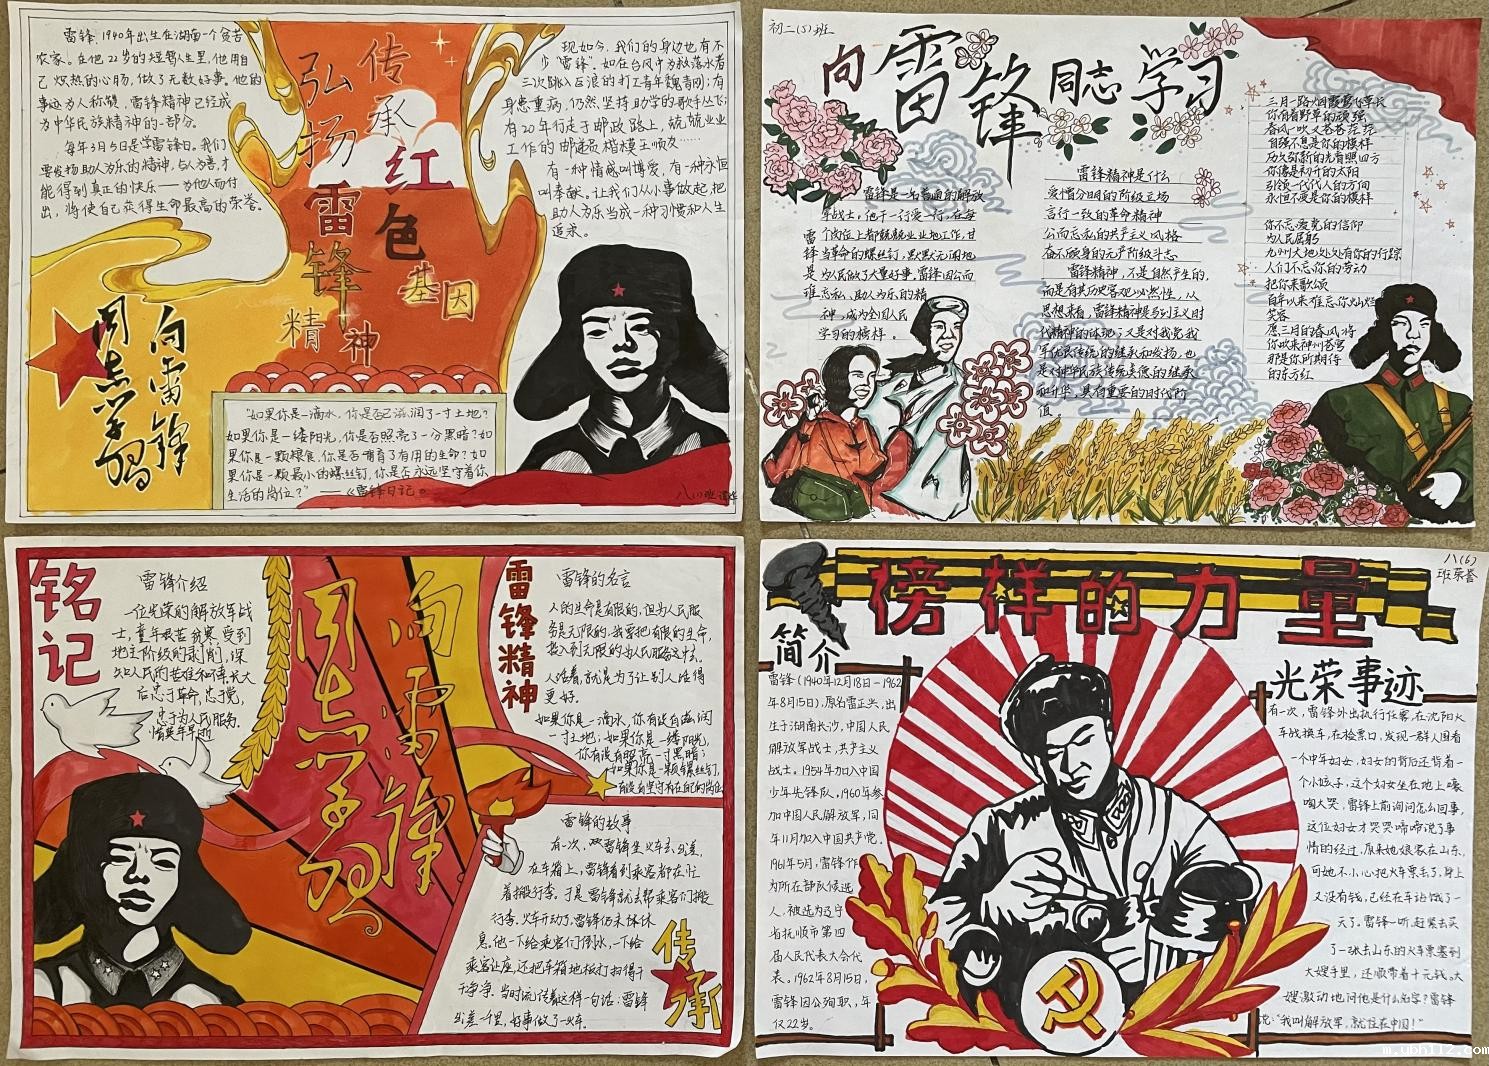 雷锋，1940年出生在湖南一个贫苦
农家。在他22岁的短暂人生里，他用自
己炽热的心肠，做了无数好事，他的
事迹为人称赞，雷锋精神已经成
为中华民族精神的一部分。
每年3月5日是学雷锋日。我们
要发扬助人为乐的精神，与人为善，才
能得到真正的快乐——为他人而付
出，将使自己获得生命最高的荣誉。
弘扬雷锋精神
传承红色基因
现如今，我们的身边也有不
少"雷锋"。如在台风中为救落水者
三次跳入巨浪的打工青年魏青刚；有
身患重病，仍然坚持助学的歌手丛飞；
有20年行走于邮政路上，兢兢业业
工作的邮递员楷模王顺友……
有一种情感叫博爱，有一种永恒
叫奉献。让我们从小事做起，把
助人为乐当成一种习惯和人生
追求。
向雷锋
同志学习
"如果你是一滴水，你是否已滋润了一寸土地？
如果你是一缕阳光，你是否照亮了一分黑暗？如
果你是一颗粮食，你是否哺育了有用的生命？如
果你是一颗最小的螺丝钉，你是否永远坚守着你
生活的岗位？"——《雷锋日记》
初二(5)班
向雷锋同志学习
雷锋是一名普通的解放
军战士，他干一行爱一行，在每
个岗位上都兢兢业业地工作，甘
当革命的螺丝钉，默默无闻地
为人民做了大量好事，雷锋因公而
忘私、助人为乐的精
神，成为全国人民
学习的榜样。
雷锋是谁
雷锋精神是什么
爱憎分明的阶级立场
言行一致的革命精神
公而忘私的共产主义风格
奋不顾身的无产阶级斗志
雷锋精神，不是自然产生的，
而是有其历史客观必然性，从
思想来看，雷锋精神是马列主义时
代精神的体现；又是对我党我
军优良传统的继承和发扬，也
是对中华民族传统美德的继承
和升华，具有重要的时代价
值。
你有着野草的顽强
春风一吹又苍苍茫茫
自强不息是你的模样
你像是初升的太阳
引领一代代人的方向
永恒不变是你的模样
你不忘爱党的信仰
为人民居躬
九州大地处处有你的行踪
人们不忘你的劳动
把你来歌颂
笑容
愿三月的春风将
你吹来神州苍穹
那是你所期待
的东方红
铭记
雷锋介绍
一位光荣的解放军战
士，童年艰苦贫寒，受到
地主阶级的剥削，深
知人民的苦难和事，长大
后忠于革命，忠于党，
忠于为人民服务，
惜英年早逝
向雷锋
同志学习
雷锋精神
雷锋的名言
人的生命是有限的，但为人民服
务是无限的，我要把有限的生命，
投入到无限的为人民服务之中去。
人活着，就是为了让别人活得
更好。
如果你是一滴水，你有没有滋润
一寸土地；如果你是一缕阳光，
你有没有照亮一寸黑暗；
如果你是一颗螺丝钉，
有没有坚守在自己的岗位
雷锋的故事
有一次，雷锋坐火车去出差，
在车箱上，雷锋看到乘客都在忙
着搬行李。于是雷锋就去帮乘客们搬
行李，火车开动了，雷锋仍未休休
息，他一下给乘客们倒水，一下给
乘客让座，还把车箱地板打扫得干
干净净。当时流传着这样一句话：雷锋
出差一千里，好事做了一火车。
传承
八(6)
榜样的力量
简介
雷锋（1940年12月18日-1962
年8月15日），原名雷正兴，出
生于湖南长沙，中国人民
解放军战士，共产主义
战士。1954年加入中国
少年先锋队，1960年参
加中国人民解放军，同
年11月加入中国共产党。
1961年5月，雷锋作
为所在部队候选
人，被选为辽宁
省抚顺市第四
届人民代表大会代
表。1962年8月15日，
雷锋因公殉职，年
仅22岁。
光荣事迹
有一次，雷锋外出执行任务，在沈阳火
车战换车，在检票口，发现一群人围着
一个中年妇女，妇女的背后还背着一
个小孩子，这个妇女坐在地上嚎
啕大哭，雷锋上前询问怎么回事，
这位妇女才哭哭啼啼说了事
情的经过，原来她娘家在山东，
可她不小心把火车票丢了，身上
又没有钱，已经在车站饿了一
天了，雷锋一听，赶紧去买
了一张去山东的火车票塞到
大嫂手里，还顺带着十元钱。大
嫂激动地问他是什么名字？雷锋
说："我叫解放军，就住在中国！"